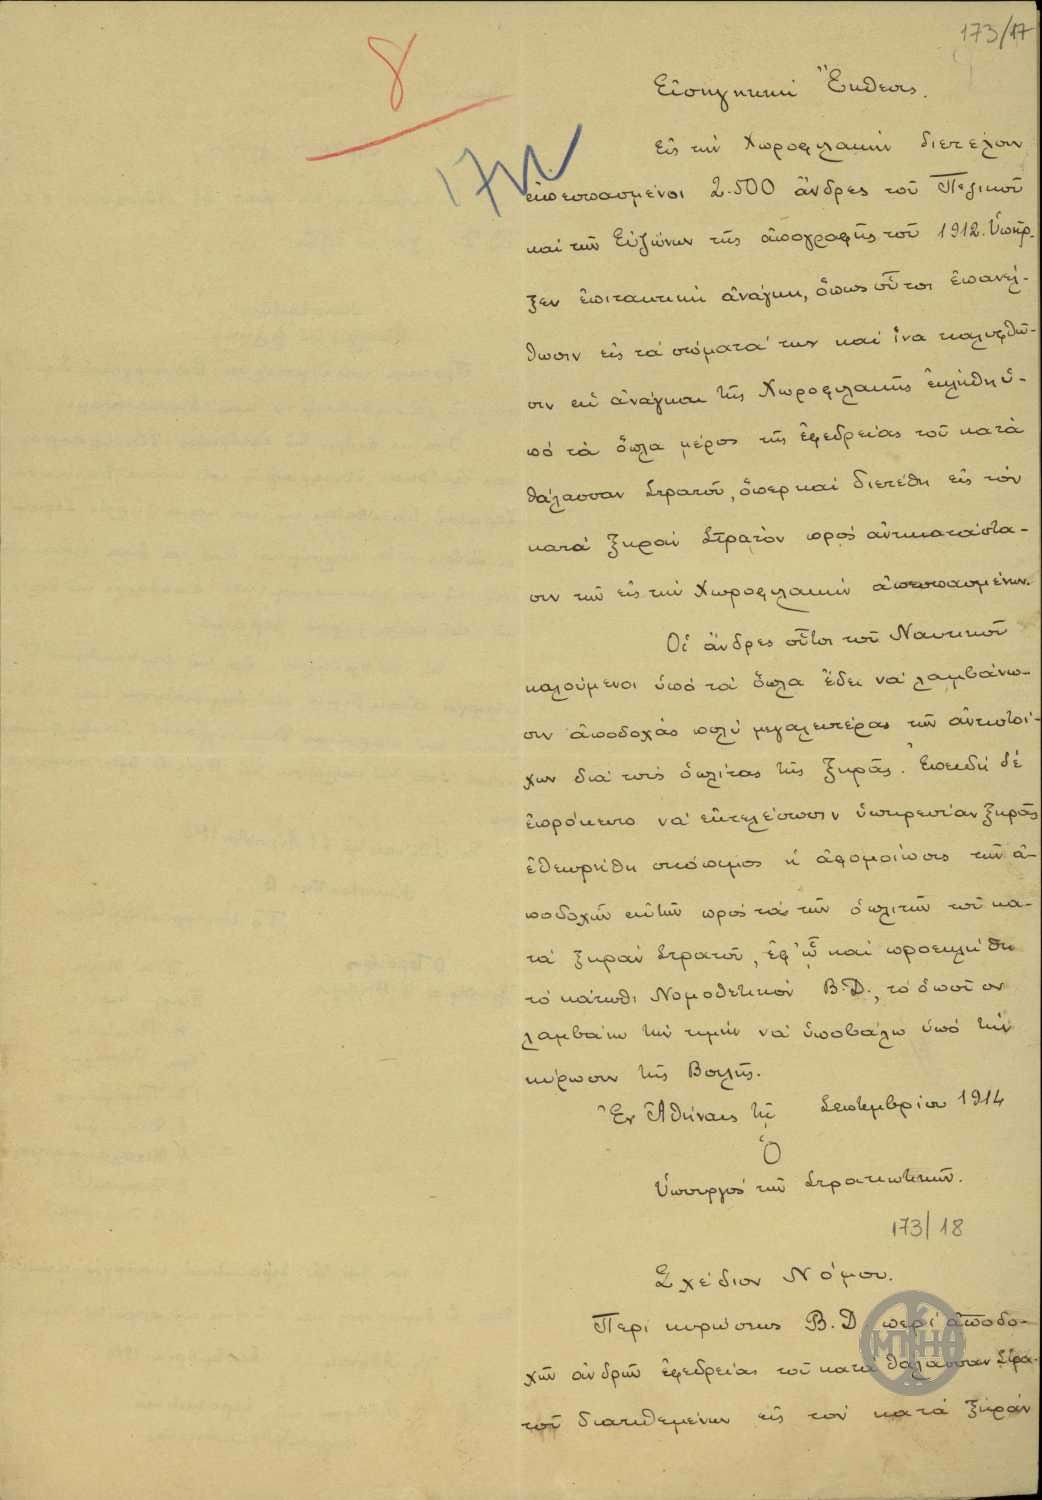 173/17
8
17
Εἰσηγητική Ἔκθεσις.
Εἰς τήν Χωροφυλακήν διετέλουν
ἀπεσπασμένοι 2.500 ἄνδρες τοῦ Πεζικοῦ
καί τῶν Εὐζώνων τῆς ἀπογραφῆς τοῦ 1912. Ὑπῆρ-
ξεν ἐπιτακτική ἀνάγκη, ὅπως οὗτοι ἐπανέλ-
θωσιν εἰς τά σώματά των καί ἵνα καλυφθῶ-
σιν αἱ ἀνάγκαι τῆς Χωροφυλακῆς ἐκλήθη ὑ-
πό τά ὅπλα μέρος τῆς ἐφεδρείας τοῦ κατά
θάλασσαν Στρατοῦ, ὅπερ καί διετέθη εἰς τόν
κατά ξηράν Στρατόν πρός ἀντικατάστα-
σιν τῶν εἰς τήν Χωροφυλακήν ἀπεσπασμένων.
Οἱ ἄνδρες οὗτοι τοῦ Ναυτικοῦ
καλούμενοι ὑπό τά ὅπλα ἔδει νά λαμβάνω-
σιν ἀποδοχάς πολύ μεγαλειτέρας τῶν ἀντιστοί-
χων διά τούς ὁπλίτας τῆς ξηρᾶς. Ἐπειδή δέ
ἐπρόκειτο νά ἐκτελέσωσιν ὑπηρεσίαν ξηρᾶς
ἐθεωρήθη σκόπιμος ἡ ἀφομοίωσις τῶν ἀ-
ποδοχῶν αὐτῶν πρός τάς τῶν ὁπλιτῶν τοῦ κα-
τά ξηράν Στρατοῦ, ἐφ' ᾧ καί προεκλήθη
τό κάτωθι Νομοθετικόν Β.Δ., τό ὁποῖον
λαμβάνω τήν τιμήν νά ὑποβάλω ὑπό τήν
κύρωσιν τῆς Βουλῆς.
Ἐν Ἀθήναις τῇ Σεπτεμβρίου 1914
Ὁ
Ὑπουργός τῶν Στρατιωτικῶν.
173/18
Σχέδιον Νόμου.
Περί κυρώσεως Β.Δ. περί ἀποδο-
χῶν ἀνδρῶν ἐφεδρείας τοῦ κατά θάλασσαν Στρα-
τοῦ διατιθεμένων εἰς τόν κατά ξηράν